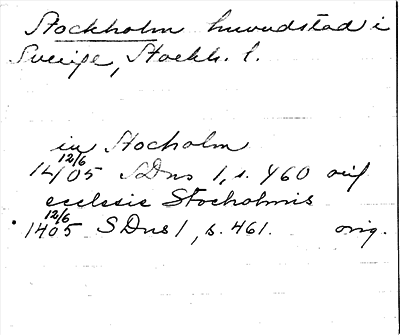 Stockholm huvudstad i
Sverige, Stockh. l.
in Stocholm
12/6
1405 SDns 1, s. 460 orig
ecclesie Stocholmis
12/6
1405 SDns 1, s. 461. orig.